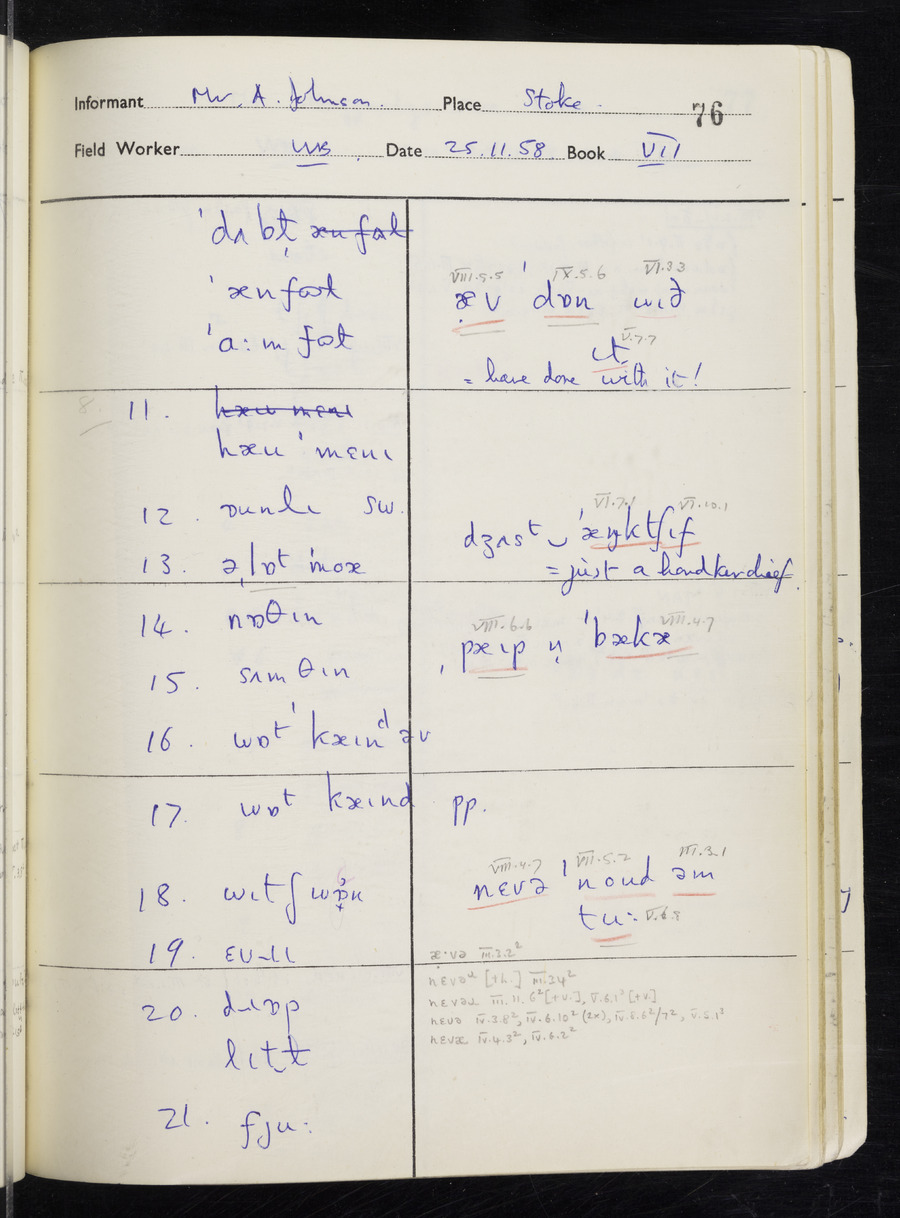 Informant Mr. A. Johnson. Place Stoke.
76
Field Worker WB. Date 25.11.58 Book VII
ˈdʌbt̩ æu fɒt
ˈæu fɒt
ˈa:m fɒt
VIII.5.5 IX.5.6 VI.3.3
æ̣v ˈdɒn wɪð
V.7.7
ɪt
= have done with it!
8.
11. hæu mɛnɪ
hæu ˈmɛnɪ
12. sw.
VI.7.1 VI.10.1
dʒʌst ‿ ˈæŋktʃɪf
= just a handkerchief.
13. ə lɒt ˈmoæ
14. nɒθɪn
VIII.6.6 VIII.4.7
, pæɪp n̩ ˈbækæ
15. sʌmθɪn
16. wɒt ˈkæɪnᵈ əv
17. wɒt kæɪnd pp.
VIII.4.7 VII.5.2 III.3.1
nɛvə ˈnoud əm
18. wɪtʃ wɒ̣n
tu: V.6.8
19. ɛv-ɹɪ
æ·və III.3.2²
nɛvəᶻ [+h.] III.3.4²
nɛvəɹ III.11.6² [+v.], V.6.1³ [+v.]
nɛvə IV.3.8², IV.6.10² (2x), IV.8.6²/7², V.5.1³
nɛvæ IV.4.3², IV.6.2²
20. dɹɒp
lɪtt
21. fju: